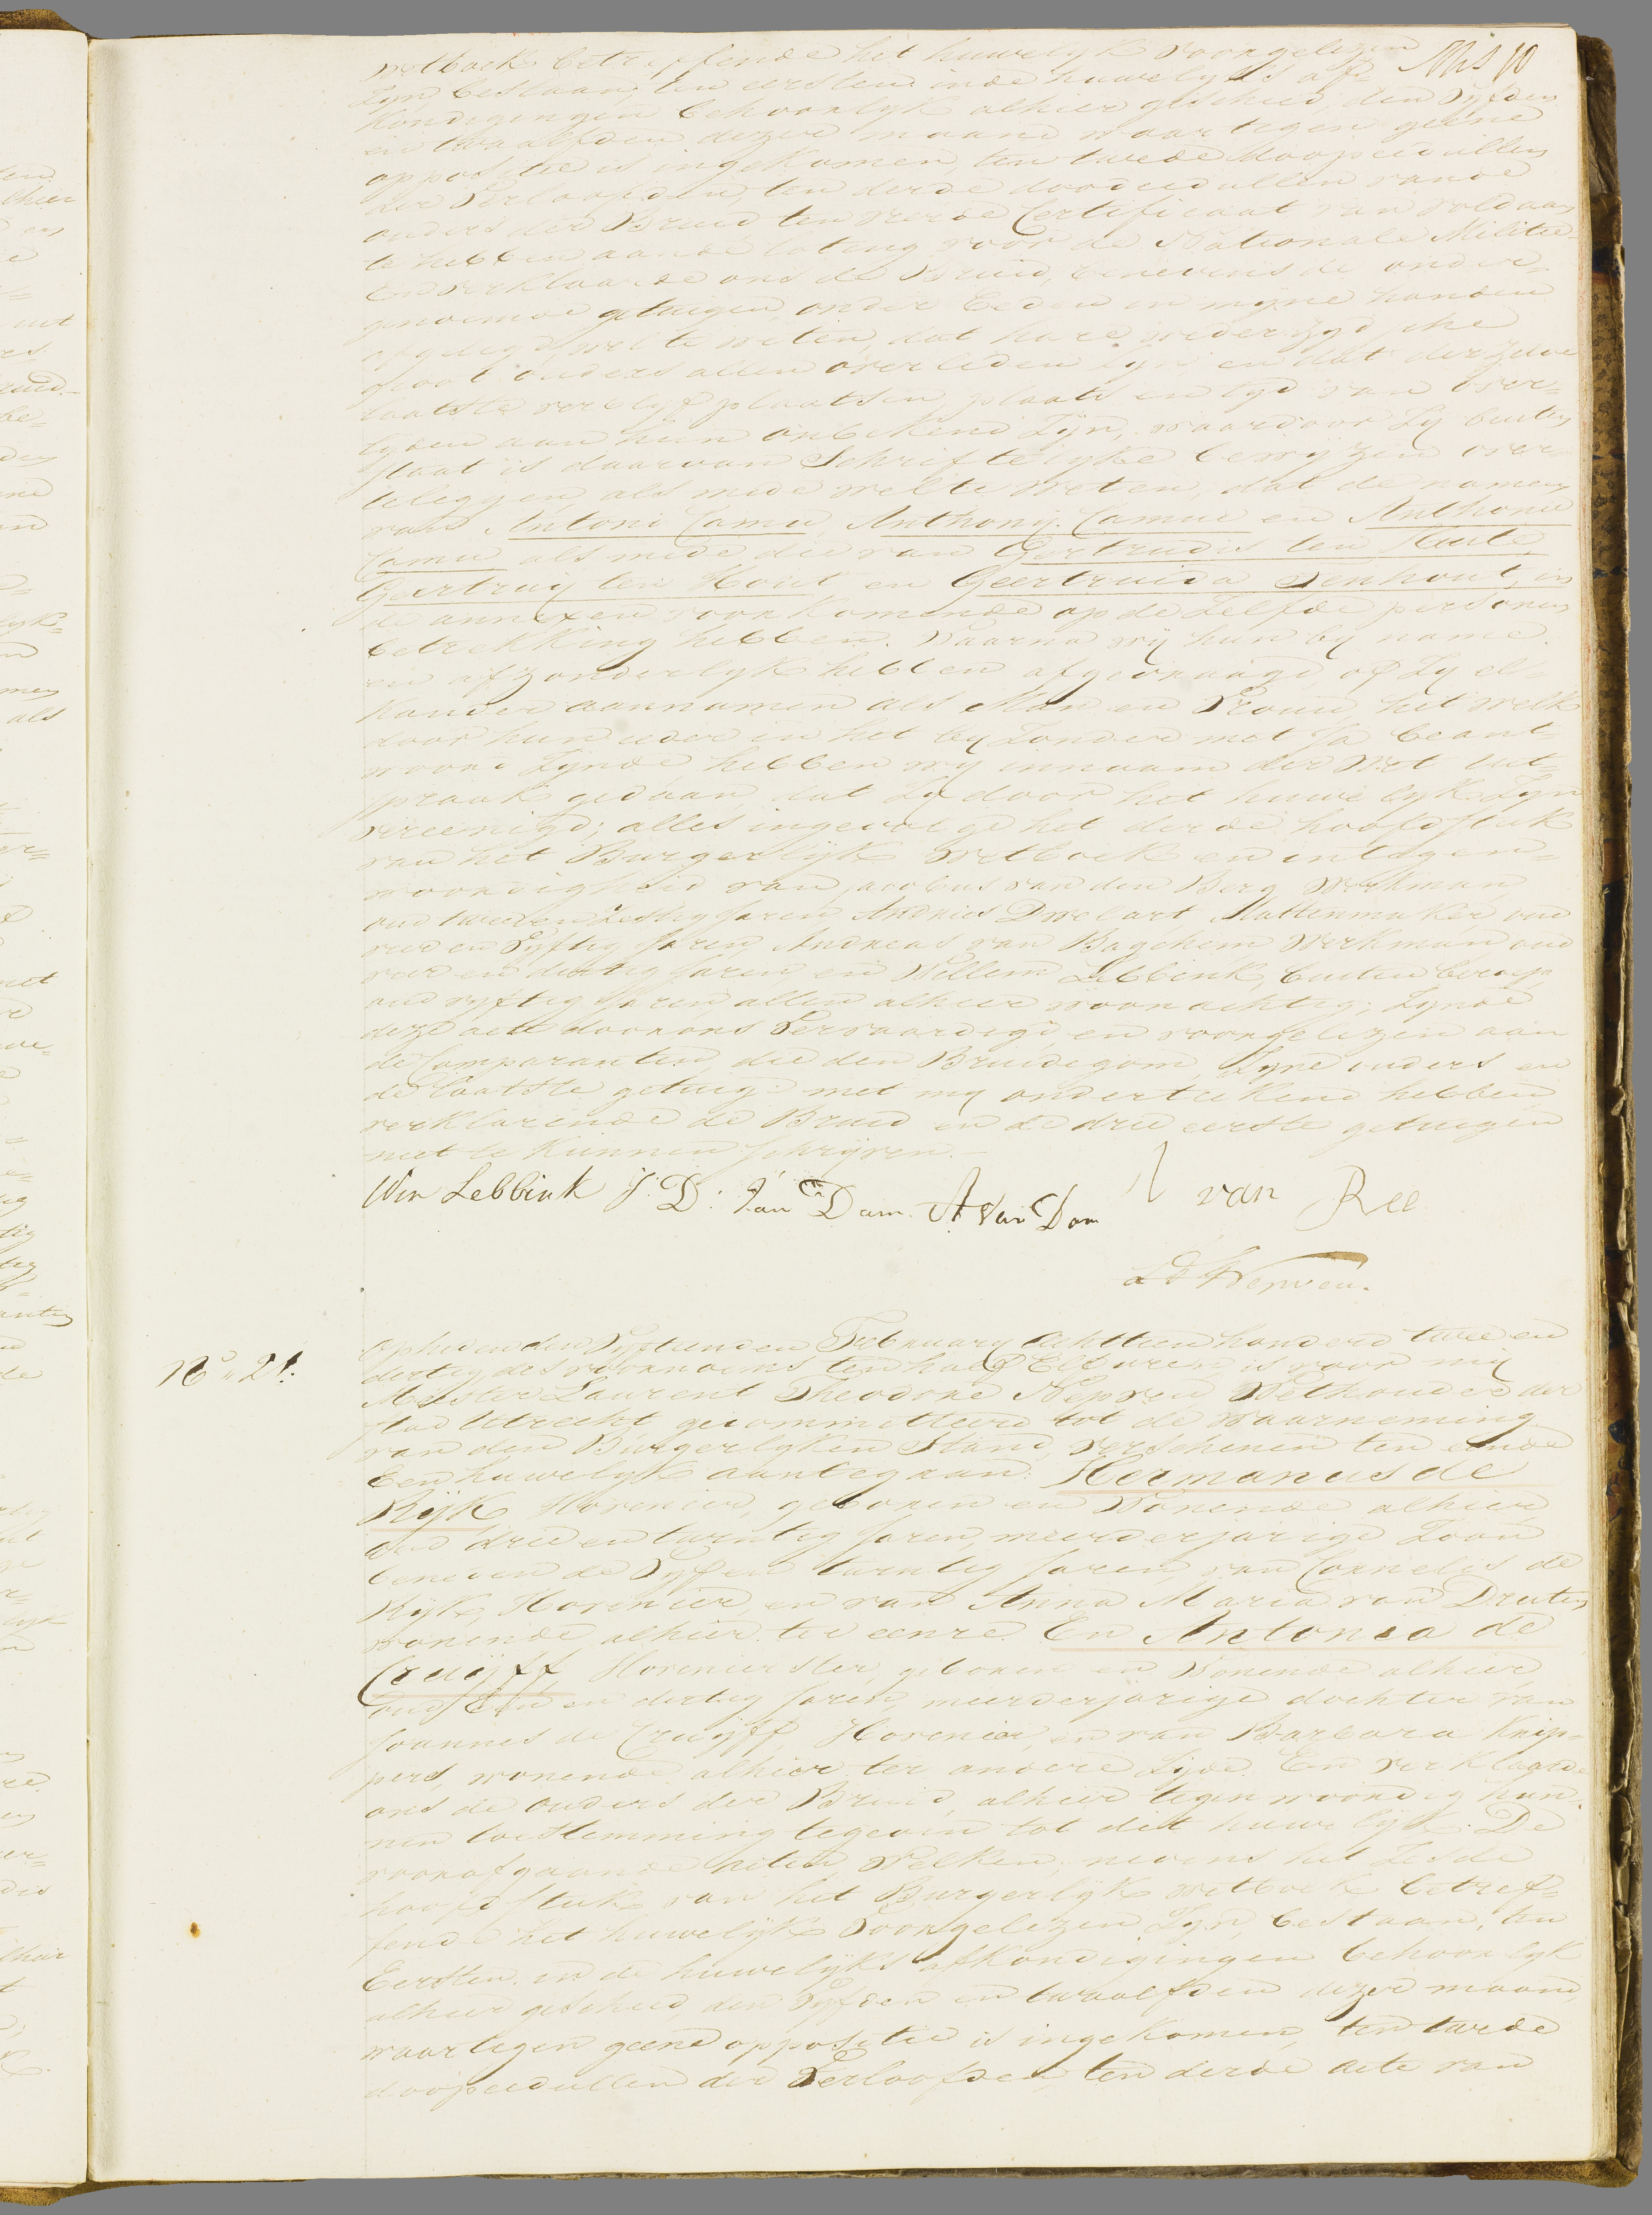 wetboek betreffende het huwelyk voorgelezen
Zyn bestaan, ten eersten in de huwelyks af-
kondigingen behoorlyk alhier geschied, den vyfden
en twaalfden dezer maand waartegen geene
oppositie is ingekomen, ten tweede doopcedullen
der Verloofden, ten derde doodcedullen van de
ouders der Bruid ten vierde Certificaat van voldaan
te hebben aan de loting voor de Nationale Militie
En verklaarde ons de Bruid, benevens de onder-
genoemde getuigen onder Eeden in myne handen
afgelegd, wel te weten, dat hare wederzydsche
groot ouders allen overleden zyn en dat derzelver
laatste verblyfplaatsen, plaats en tyd van over-
lyden aan hun onbekend Zyn, waardoor Zy buiten
staat is daarvan Schriftelyke bewyzen over
teleggen, als mede wel te weten, dat de namen
van Antoni Camu, Anthony Camu en Anthonie
Camu als mede die van Gertrudis ten Haute,
Geertruy ten Hout en Geertruida Tenhout, in
de annexen voorkomende op de Zelfde personen
betrekking hebben. Waarna wy hun by name
en afzonderlyk hebben afgevraagd, of Zy el-
kander aannamen als Man en Vrouw, het welk
door hun ieder in het by Zonder met Ja beant-
woord Zynde hebben wy in naam der Wet uit-
spraak gedaan, dat Zy door het huwelyk Zyn
vereenigd; alles ingevolge het derde hoofdstuk
van het Burgerlyk wetboek en in tegen-
woordigheid van Jacobus van den Berg Werkman,
oud twee en Zestig Jaren, Andries Dwelart, Mattenmaker, oud
vier en Vyftig Jaren, Andreas van Bagchem, Werkman oud
vier en dertig Jaren, en Willem Lebbink, buiten beroep,
oud vyftig Jaren allen alhier woonachtig; Zynde
deze acte door ons Vervaardigd, en voorgelezen aan
de Comparanten, die den Bruidegom, Zyne ouders en
de laatste getuige met my onderteekend hebben
verklarende de Bruid en de drie eerste getuigen
niet te kunnen Schryven.-
Wm Lebbink J: D: Van Dam. A Van Dam van Ree
LT Nepveu.
No. 21.
Op heden den Vyftienden February Achttien honderd twee en
dertig des voornoens ten half Elf uren, is voor my
Meester Laurent Theodore Nepveu, Wethouder der
stad Utrecht gecommitteerd tot de waarneming
van den Burgerlyken Stand, verschenen ten einde
Een huwelyk aantegaan: Hermanus de
Ryk, Hovenier, geboren en Wonende alhier,
oud drie en twintig Jaren, meerderjarige Zoon
beneden de Vyf en twintig Jaren, van Cornelis de
Ryk, Hovenier, en van Anna Maria van Druten
wonende alhier ter eenre. En Antonia de
Cruijff, Hovenierster, geboren en Wonende alhier,
oud Een en dertig Jaren, meerderjarige dochter van
Joannes de Cruijff, Hovenier, en van Barbara Knip-
pers, wonende alhier ter andere Zyde. En verklaarde
ons de ouders der Bruid, alhier tegenwoordig hun-
nen toestemming tegeven tot dit huwelyk. De
voorafgaande acten, Welken, nevens het Zesde
hoofdstuk van het Burgerlyk wetboek betref-
fende het huwelyk voorgelezen Zyn, bestaan, ten
Eersten in de huwelyks afkondigingen behoorlyk
alhier geschied, den Vyfden en twaalfden dezer maand,
waartegen geene oppositie is ingekomen, ten tweede
doopcedullen der Verloofden, ten derde acte van